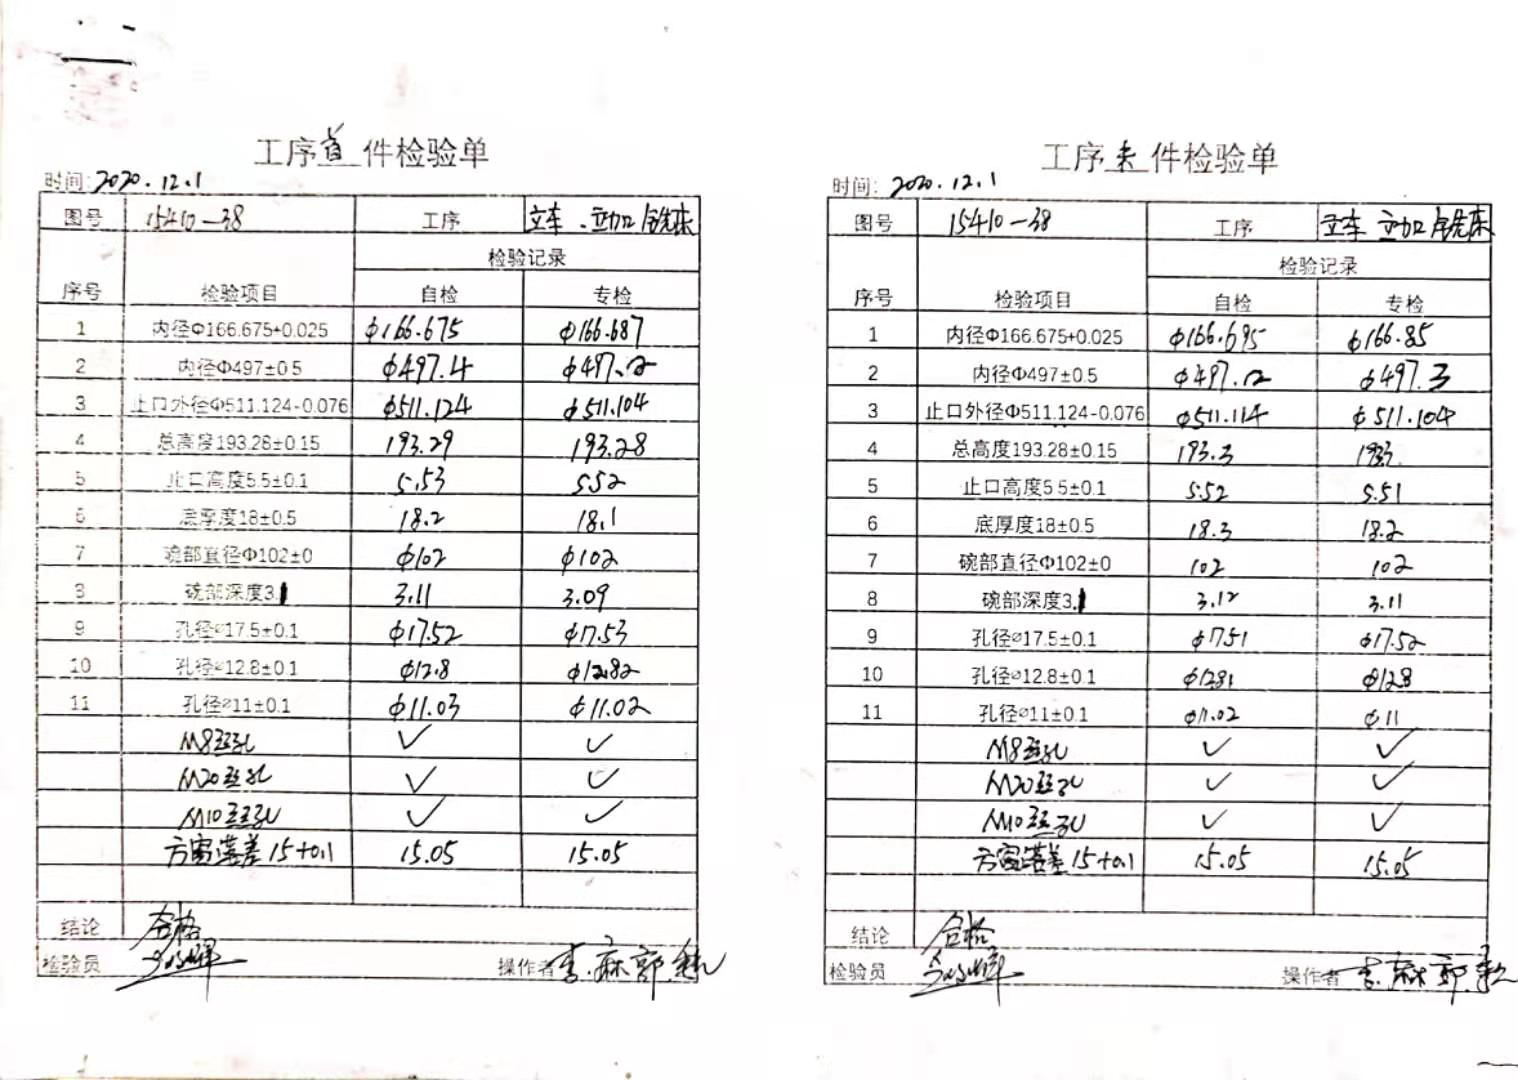 工序首件检验单
时间: 2020.12.1
图号 15410-38 工序 立车.立加 铣床
检验记录
序号 检验项目 自检 专检
1 内径Φ166.675+0.025 φ166.675 φ166.687
2 内径Φ497±0.5 φ497.4 φ497.2
3 止口外径Φ511.124-0.076 φ511.124 φ511.104
4 总高度193.28±0.15 193.29 193.28
5 止口高度5.5±0.1 5.53 5.52
6 底厚度18±0.5 18.2 18.1
7 碗部直径Φ102±0 φ102 φ102
8 碗部深度3.1 3.11 3.09
9 孔径⌀17.5±0.1 φ17.52 φ17.53
10 孔径⌀12.8±0.1 φ12.8 φ12.82
11 孔径⌀11±0.1 φ11.03 φ11.02
M8丝孔 ✓ ✓
M20丝孔 ✓ ✓
M10丝孔 ✓ ✓
方窗落差15+0.1 15.05 15.05
结论 合格
检验员 操作者 李.麻.郭.
工序末件检验单
时间: 2020.12.1
图号 15410-38 工序 立车 立加 铣床
检验记录
序号 检验项目 自检 专检
1 内径Φ166.675+0.025 φ166.695 φ166.85
2 内径Φ497±0.5 φ497.2 φ497.3
3 止口外径Φ511.124-0.076 φ511.114 φ511.104
4 总高度193.28±0.15 193.3 193.3
5 止口高度5.5±0.1 5.52 5.51
6 底厚度18±0.5 18.3 18.2
7 碗部直径Φ102±0 102 102
8 碗部深度3.1 3.12 3.11
9 孔径⌀17.5±0.1 φ17.51 φ17.52
10 孔径⌀12.8±0.1 φ12.81 φ12.8
11 孔径⌀11±0.1 φ11.02 φ11
M8丝孔 ✓ ✓
M20丝孔 ✓ ✓
M10丝孔 ✓ ✓
方窗落差15+0.1 15.05 15.05
结论 合格
检验员 操作者 李.麻.郭.